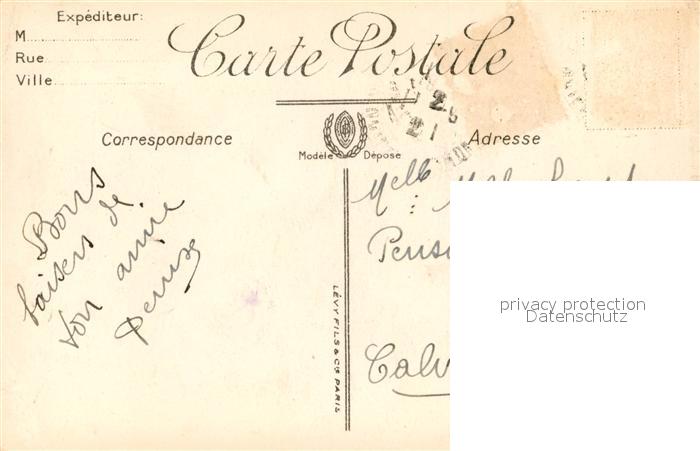 Expéditeur:
M
Rue
Ville
Carte Postale
Correspondance
Modèle Déposé
Adresse
Bons
baisers de
ton amie
Denise
Melle
Calv
LÉVY FILS & Cie PARIS
privacy protection
Datenschutz